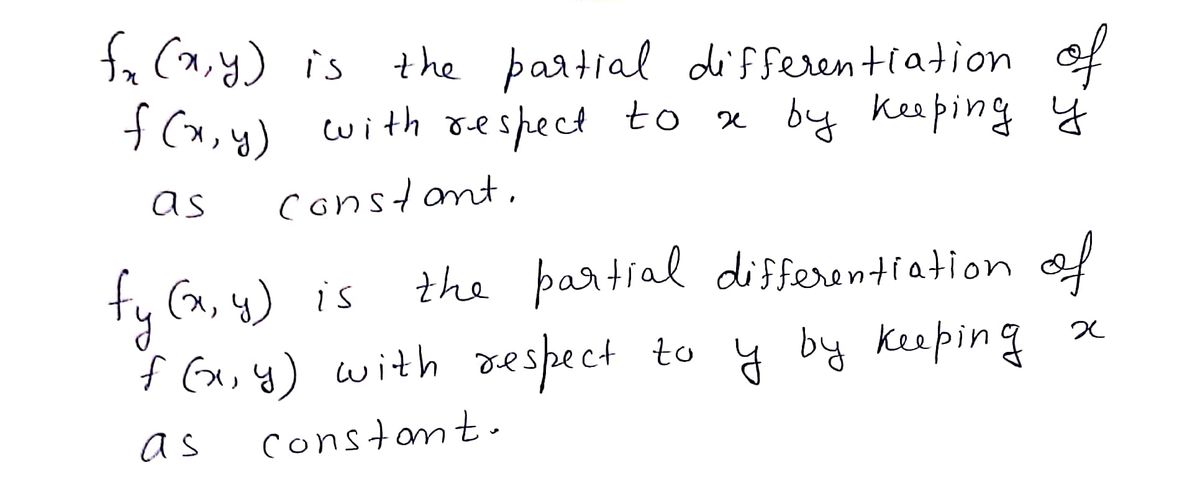 fₓ(x,y) is the partial differentiation of
f(x,y) with respect to x by keeping y
as constant.
f_y(x,y) is the partial differentiation of
f(x,y) with respect to y by keeping x
as constant.